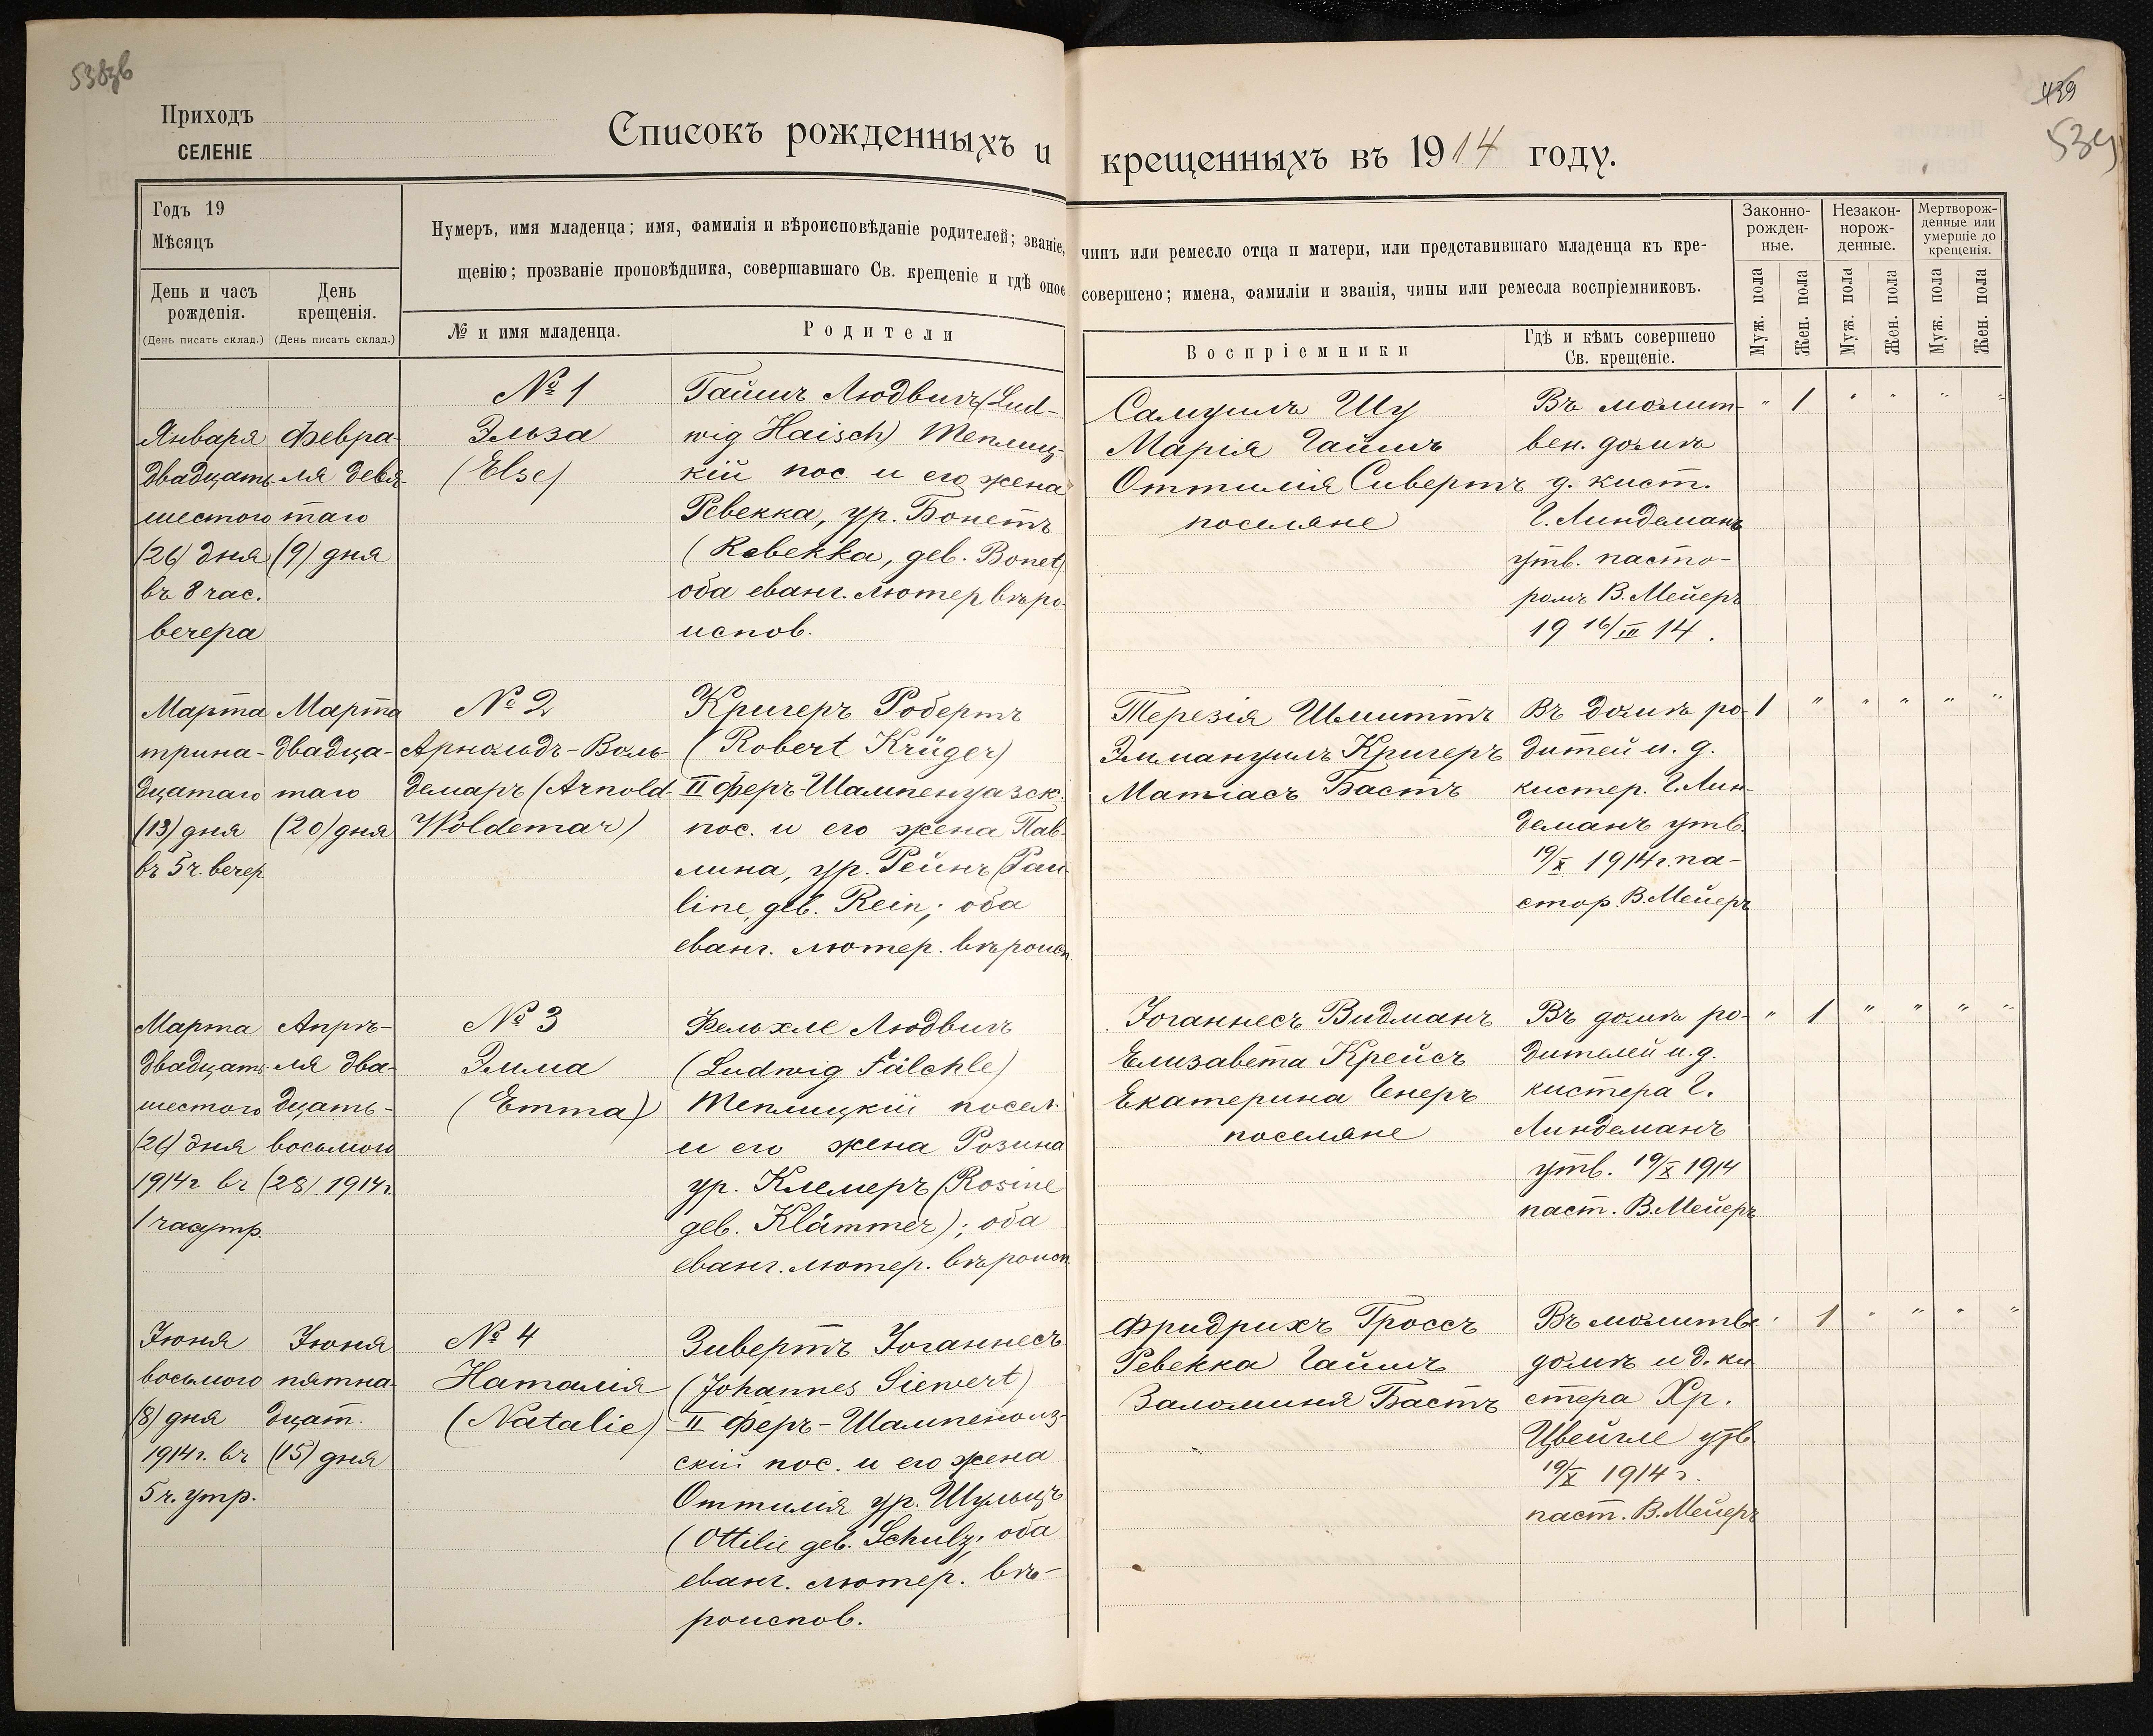 538зв
439
539
Приходъ
СЕЛЕНІЕ
Списокъ рожденныхъ и крещенныхъ въ 1914 году.
Годъ 19
Мѣсяцъ
День и часъ рожденія.
(День писать склад.)
День крещенія.
(День писать склад.)
Нумеръ, имя младенца; имя, фамилія и вѣроисповѣданіе родителей; званіе, чинъ или ремесло отца и матери, или представившаго младенца къ кре-
щенію; прозваніе проповѣдника, совершавшаго Св. крещеніе и гдѣ оное совершено; имена, фамиліи и званія, чины или ремесла воспріемниковъ.
№ и имя младенца.
Родители
Воспріемники
Гдѣ и кѣмъ совершено
Св. крещеніе.
Законно-
рожден-
ные.
Незакон-
норож-
денные.
Мертворож-
денные или
умершіе до
крещенія.
Муж. пола
Жен. пола
Муж. пола
Жен. пола
Муж. пола
Жен. пола
Января
двадцать
шестого
(26) дня
въ 8 час.
вечера
Февра-
ля девя-
таго
(9) дня
№ 1
Эльза
(Else)
Гайшъ Людвигъ (Lud-
wig Haisch) Теплиц-
кій пос. и его жена
Ревекка, ур. Бонетъ
(Rebekka, geb. Bonet)
оба еванг. лютер вѣро-
испов.
Самуилъ Шу
Марія Гайшъ
Оттилія Сивертъ
поселяне
Въ молит-
вен. домѣ
д. кист.
Г. Линдеманъ
утв. пасто-
ромъ В. Мейеръ
19 16/III 14.
" 1 " " " "
Марта
трина-
дцатаго
(13) дня
въ 5 ч. вечер
Марта
двадца-
таго
(20) дня
№ 2
Арнольдъ-Воль-
демаръ (Arnold
Woldemar)
Кригеръ Робертъ
(Robert Krüger)
II Феръ-Шампенуазск.
пос. и его жена Пав-
лина, ур. Рейнъ (Pau-
line, geb. Rein; оба
еванг. лютер. вѣроисп.
Терезія Шмиттъ
Эммануилъ Кригеръ
Матіасъ Бастъ
Въ домѣ ро-
дитей и. д.
кистер. Г. Лин-
деманъ утв.
19/X 1914 г. па-
стор. В. Мейеръ
1 " " " " "
Марта
двадцать
шестого
(26) дня
1914 г. въ
1 час утр.
Апрѣ-
ля два-
дцать-
восьмого
(28). 1914 г.
№ 3
Эмма
(Emma)
Фельхле Людвигъ
(Ludwig Fälchle)
Теплицкій посел.
и его жена Розина
ур. Клемеръ (Rosine
geb. Klämmer); оба
еванг. лютер. вѣроисп.
Іоганнесъ Видманъ
Елизавета Крейсъ
Екатерина Генеръ
поселяне
Въ домѣ ро-
дителей и. д.
кистера Г.
Линдеманъ
утв. 19/X 1914
паст. В. Мейеръ
" 1 " " " "
Іюня
восьмого
(8) дня
1914 г. въ
5 ч. утр.
Іюня
пятна-
дцат.
(15) дня
№ 4
Наталія
(Natalie)
Зивертъ Іоганнесъ
(Johannes Siewert)
II Феръ-Шампенолз-
скій пос. и его жена
Оттилія ур. Шульцъ
(Ottilie geb. Schulz; оба
еванг. лютер. вѣ-
роиспов.
Фридрихъ Гроссъ
Ревекка Гайшъ
Заломиня Бастъ
Въ молитве.
домѣ и д. ки-
стера Хр.
Цвейгле утв.
19/X 1914 г.
паст. В. Мейеръ
" 1 " " " "